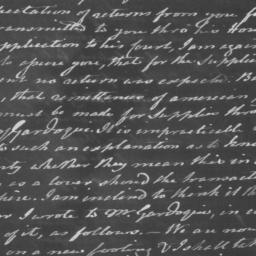 ectation of returns from you, fu
transmitted to you thro' his Hon
pplication to his Court, I am again
to assure you, that for the Supplies
no return was expected. B
, that remittances of american
must be made for Supplies thro
of Gardoque. It is impracticable
to such an explanation as to kno
nty whether they mean this in
as a cover should the transacti
here. I am inclined to think it th
or I wrote to Mr. Gardoque, in
of it, as follows. — We are now
on a new footing & I shall tak